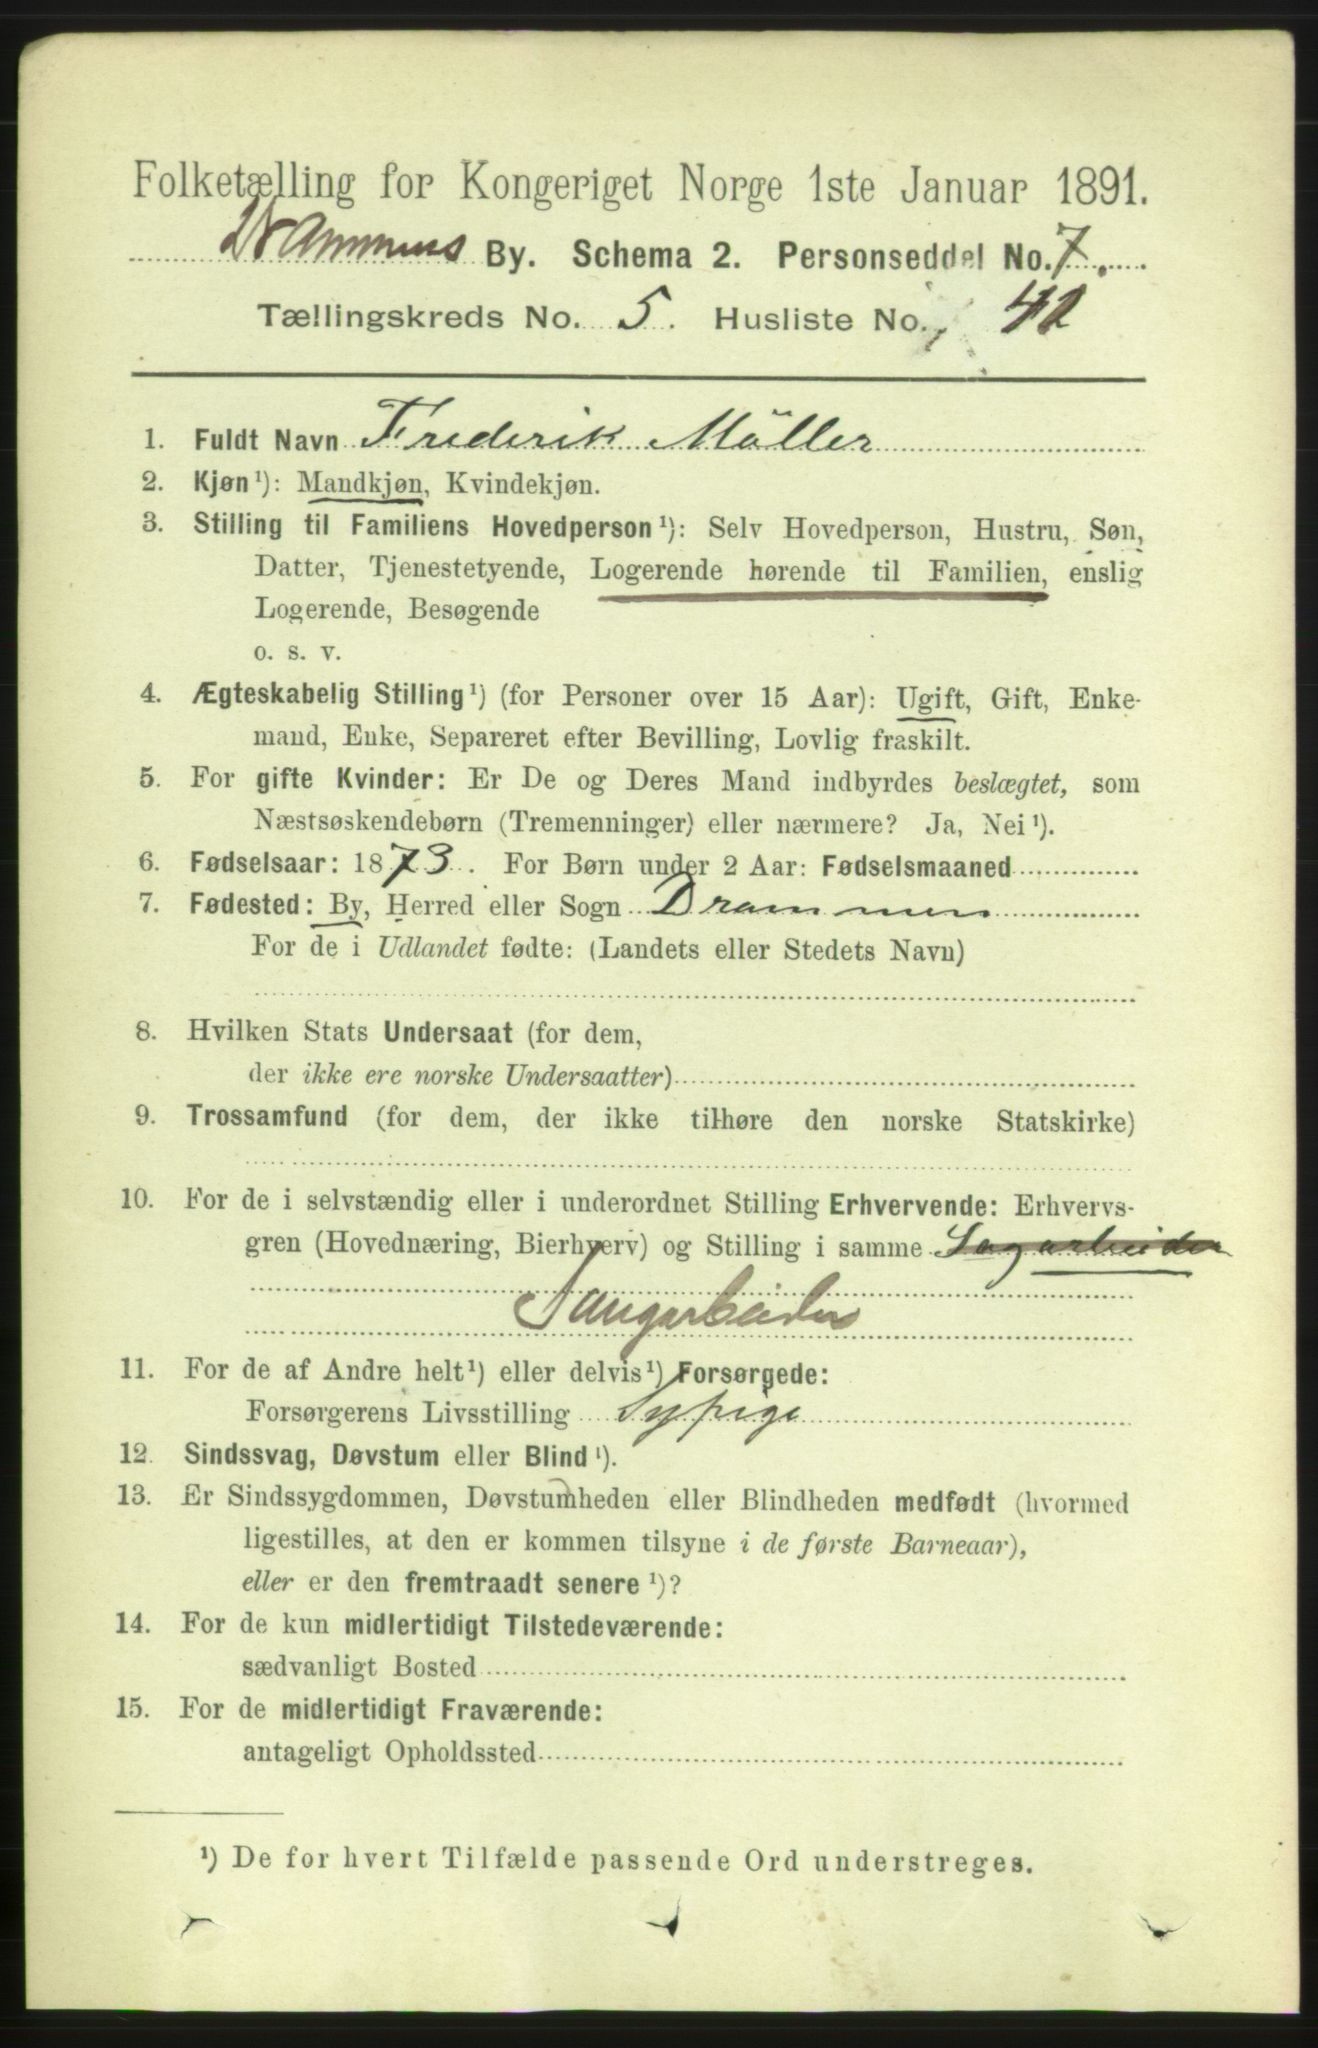 Folketælling for Kongeriget Norge 1ste Januar 1891.
Drammens By. Schema 2. Personseddel No. 7.
Tællingskreds No. 5. Husliste No. 42
1. Fuldt Navn Frederik Möller
2. Kjøn¹): Mandkjøn, Kvindekjøn.
3. Stilling til Familiens Hovedperson¹): Selv Hovedperson, Hustru, Søn,
Datter, Tjenestetyende, Logerende hørende til Familien, enslig
Logerende, Besøgende
o. s. v.
4. Ægteskabelig Stilling¹) (for Personer over 15 Aar): Ugift, Gift, Enke-
mand, Enke, Separeret efter Bevilling, Lovlig fraskilt.
5. For gifte Kvinder: Er De og Deres Mand indbyrdes beslægtet, som
Næstsøskendebørn (Tremenninger) eller nærmere? Ja, Nei¹).
6. Fødselsaar: 1873. For Børn under 2 Aar: Fødselsmaaned
7. Fødested: By, Herred eller Sogn Drammen
For de i Udlandet fødte: (Landets eller Stedets Navn)
8. Hvilken Stats Undersaat (for dem,
der ikke ere norske Undersaatter)
9. Trossamfund (for dem, der ikke tilhøre den norske Statskirke)
10. For de i selvstændig eller i underordnet Stilling Erhvervende: Erhvervs-
gren (Hovednæring, Bierhverv) og Stilling i samme Sagarbeider
Saugarbeider
11. For de af Andre helt¹) eller delvis¹) Forsørgede:
Forsørgerens Livsstilling Sypige
12. Sindssvag, Døvstum eller Blind¹).
13. Er Sindssygdommen, Døvstumheden eller Blindheden medfødt (hvormed
ligestilles, at den er kommen tilsyne i de første Barneaar),
eller er den fremtraadt senere¹)?
14. For de kun midlertidigt Tilstedeværende:
sædvanligt Bosted
15. For de midlertidigt Fraværende:
antageligt Opholdssted
¹) De for hvert Tilfælde passende Ord understreges.